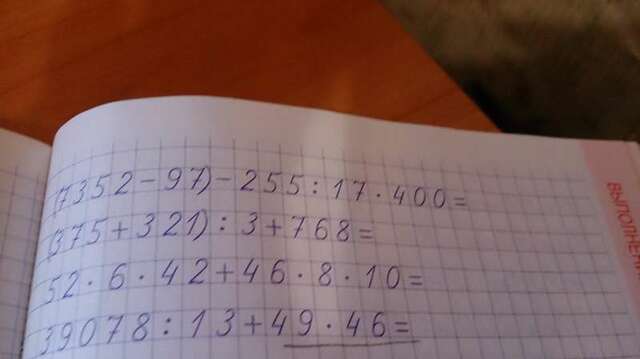 (7352-97)-255:17·400=
(375+321):3+768=
52·6·42+46·8·10=
39078:13+49·46=